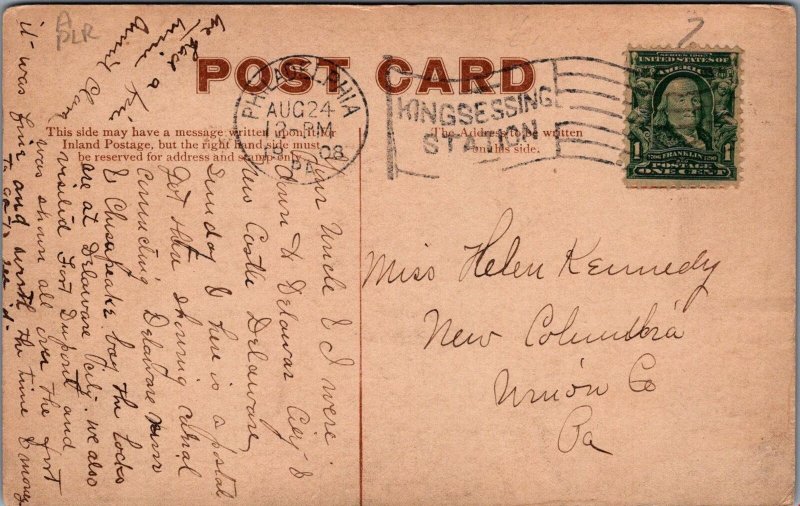 A
PLR
7
POST CARD
This side may have a message written upon it for
Inland Postage, but the right hand side must
be reserved for address and stamp only.
The Address to be written
on this side.
PHILADELPHIA
AUG 24
PM
08
PA.
KINGSESSING
STATION
SERIES 1902
UNITED STATES OF
AMERICA
1706 FRANKLIN 1790
POSTAGE
1 ONE CENT 1
Your Uncle & I were
down to Delawar City &
New Castle Delaware
Sunday & here is a postal
Get Hotu showing canal
connecting Delaware river
& Chisapeake bay the locks
are at Delaware City. we also
visited Fort Dupont and
was shown all over the fort
it was fine and worth the time & money
to go to see it.
We had a
fine trip
Aunt Clara
Miss Helen Kennedy
New Columbia
Union Co
Pa